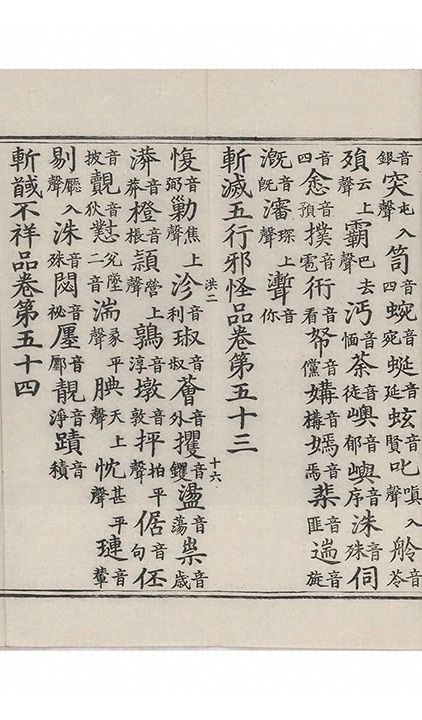 銀音突聲屯入笥四音蜿宛音蜒延音蛟賢音叱聲嗔入舲苓音
殞聲云上霸聲巴去沔愐音荼徒音噢郁音嶼序音洙殊音伺
四音悆預音撲雹音衏看音帑儻音媾構音嫣焉音棐匪音遄旋音
溉旣音瀋聲琛上
斬滅五行邪怪品卷第五十三
洪二 十六
愎弼音勦聲焦上沴利音琡叔音薈外音攫钁音盪蕩音祟歲音
漭莽音橙棖音頴聲營上鶉淳音墩敦音坪聲拍平倨句音伾
披音覿狄音懟二音兊墮湍聲彖平腆聲天上忱聲甚平璉輦音
剔聲廳入洙殊音閟祕音廛鄽音靚淨音蹟積音
斬馘不祥品卷第五十四